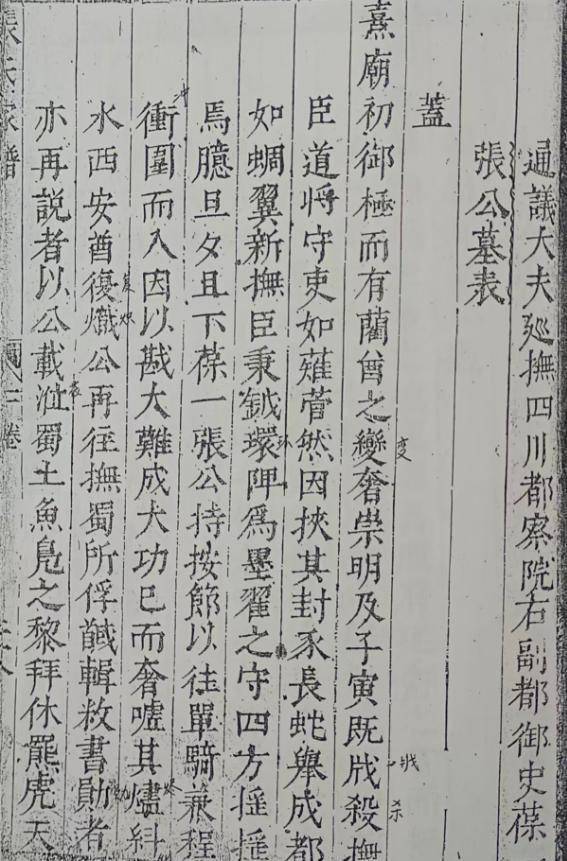 通議大夫廵撫四川都察院右副都御史葆
張公墓表
蓋
熹廟初御極而有藺酋之變奢崇明及子寅既戕殺撫
臣道將守吏如薙菅然因挾其封豕長蛇舉成都
如蜩翼新撫臣秉鉞環陴爲墨翟之守四方揺揺
焉臆旦夕且下葆一張公持按節以徃單騎兼程
衝圍而入因以戡大難成大功已而奢噓其燼糾
水西安酋復熾公再徃撫蜀所俘馘輯敉書勛者
亦再説者以公載涖蜀土魚鳬之黎拜休羆虎天
張氏家譜
卷
变
戕
杀
环
冲
烬
复炽